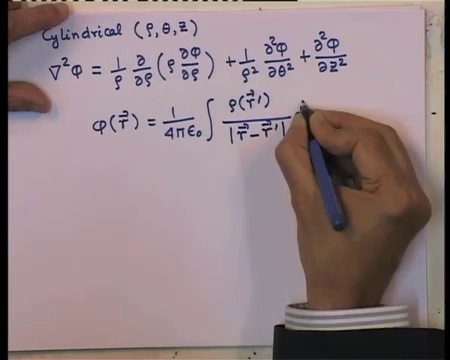 Cylindrical (ρ, θ, z)
∇²φ = 1/ρ ∂/∂ρ (ρ ∂φ/∂ρ) + 1/ρ² ∂²φ/∂θ² + ∂²φ/∂z²
φ(r⃗) = 1/4πε₀ ∫ ρ(r⃗')/|r⃗ − r⃗'|